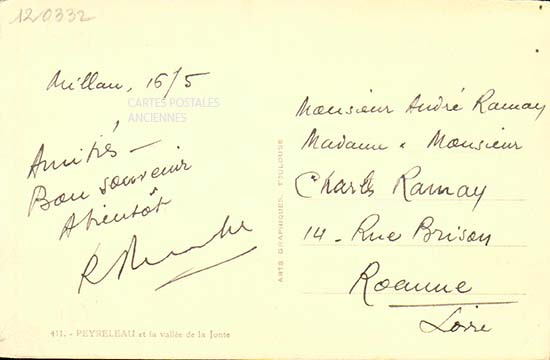 120332
Millau, 16/5
CARTES POSTALES
ANCIENNES
Amitiés —
Bon souvenir
A bientôt
Monsieur André Ramay
Madame & Monsieur
Charles Ramay
14 - Rue Brison
Roanne
Loire
ARTS GRAPHIQUES. TOULOUSE
411. - PEYRELEAU et la vallée de la Jonte